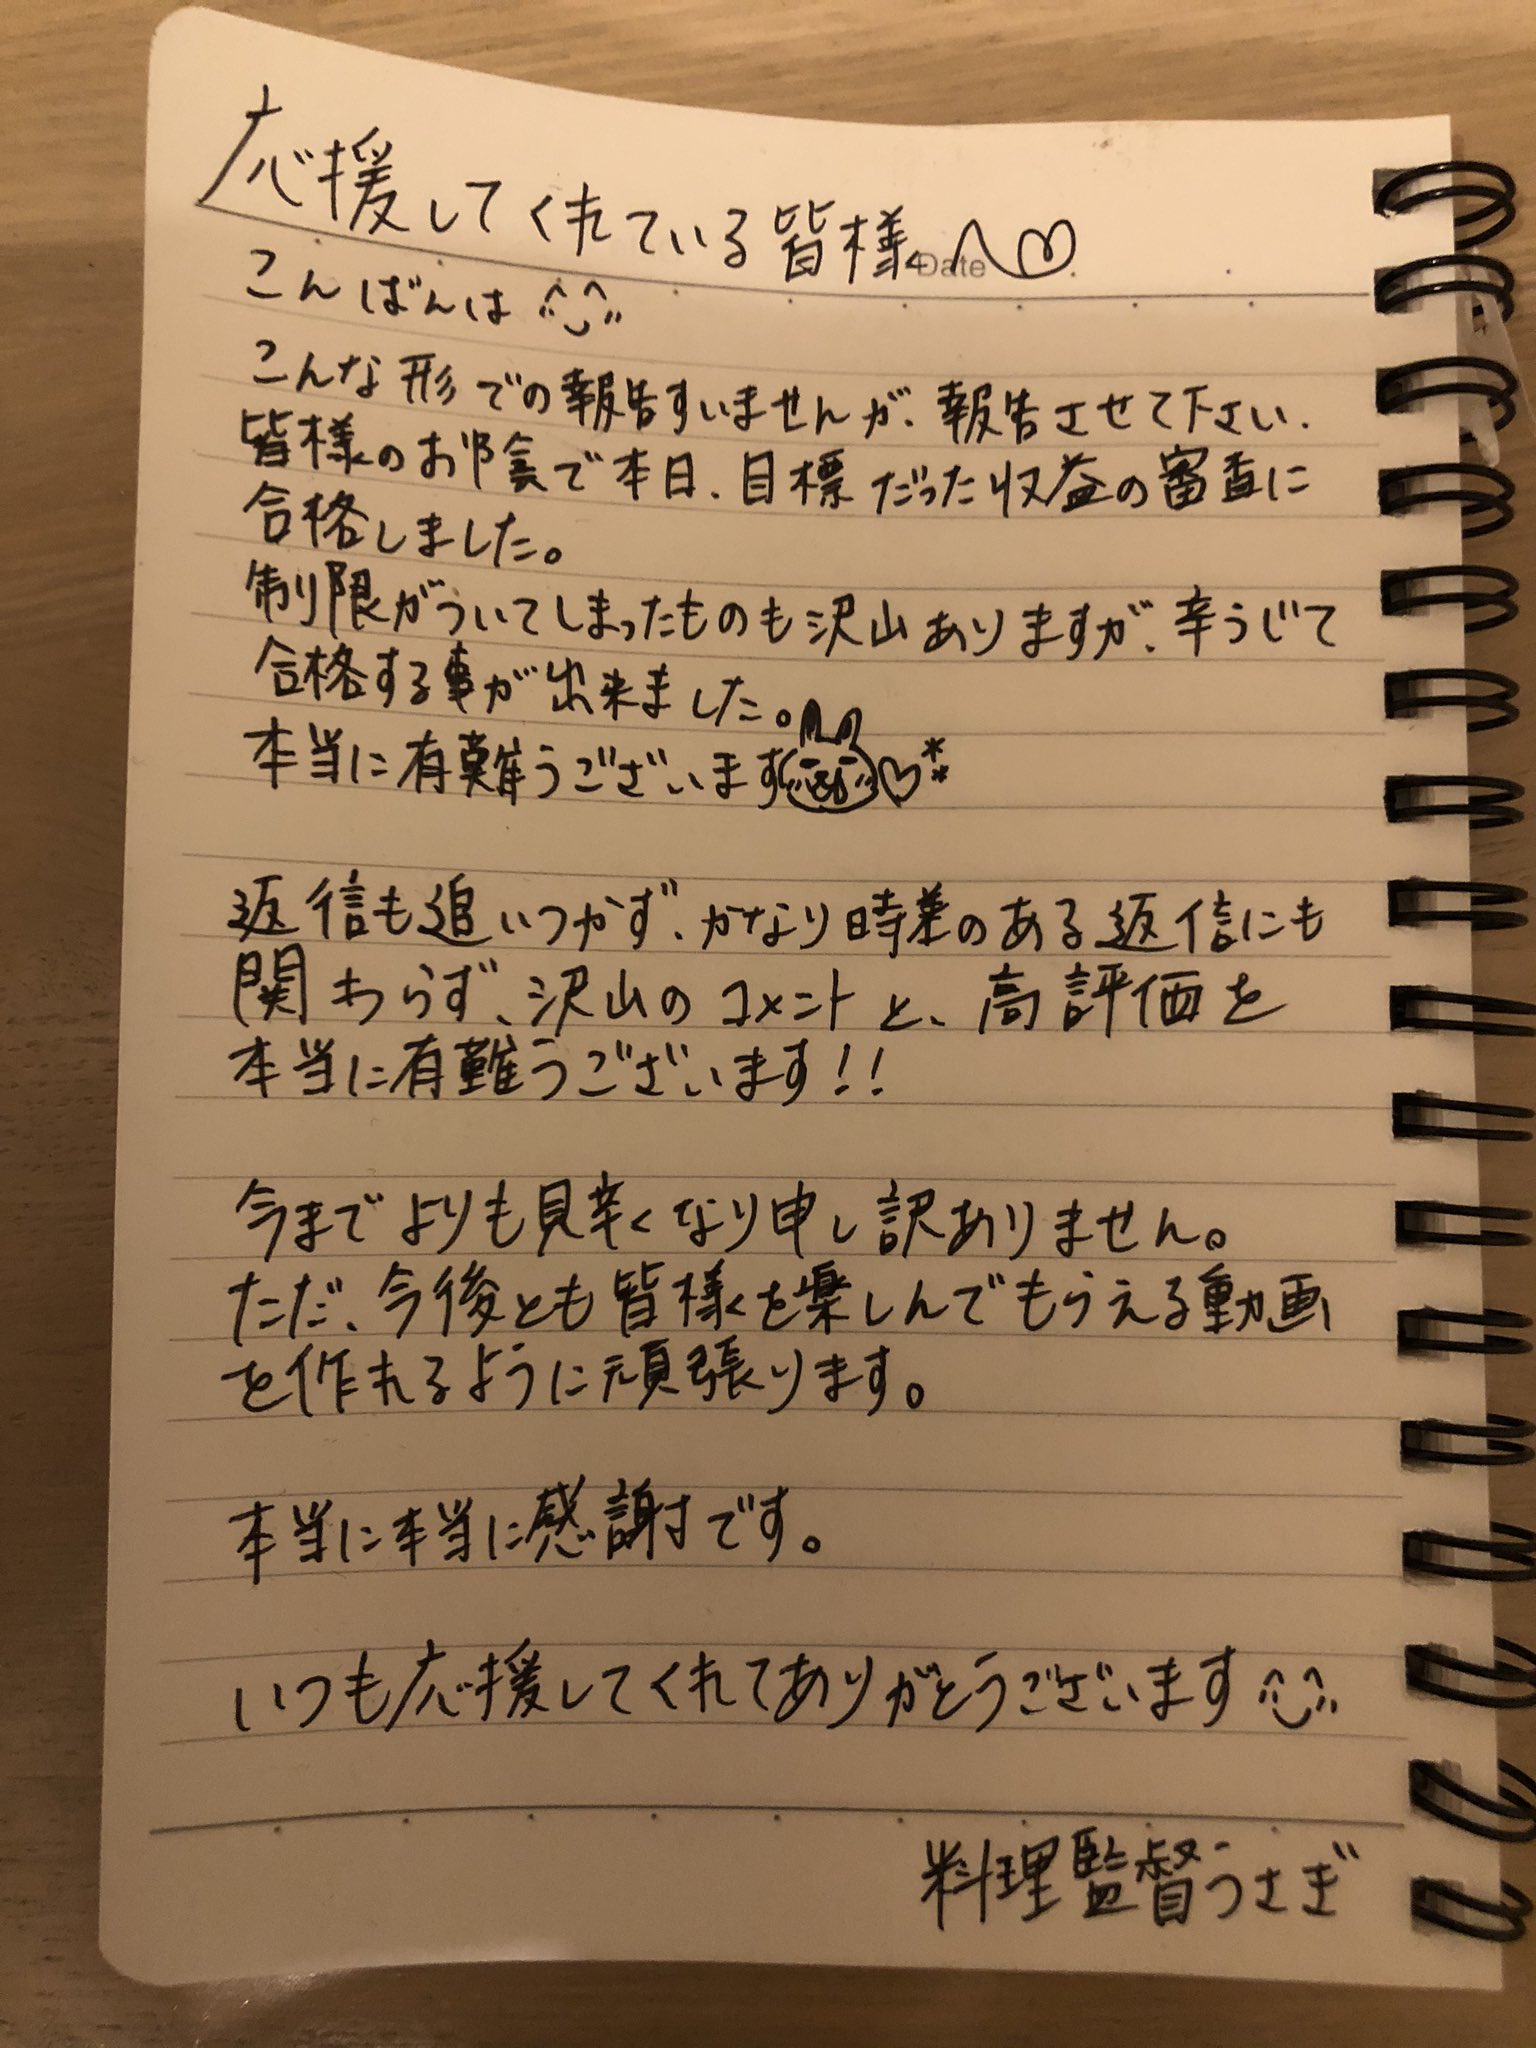 応援してくれている皆様へ♡
Date
こんばんは^^
こんな形での報告すいませんが、報告させて下さい.
皆様のお陰で本日、目標だった収益の審査に
合格しました。
制限がついてしまったものも沢山ありますが、辛うじて
合格する事が出来ました。
本当に有難うございます♡**
返信も追いつかず、かなり時差のある返信にも
関わらず、沢山のコメントと、高評価を
本当に有難うございます!!
今までよりも見辛くなり申し訳ありません。
ただ、今後とも皆様を楽しんでもらえる動画
を作れるように頑張ります。
本当に本当に感謝です。
いつも応援してくれてありがとうございます^^
料理監督うさぎ